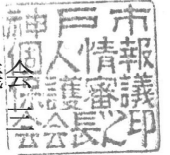 会
三
神戸市
個人情報
保護審議
会会長之印